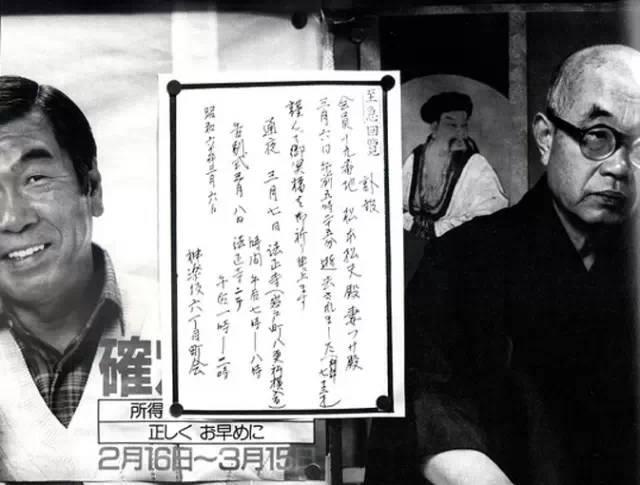 至急回覧 訃報
会員十九番地 松本松夫殿妻つサ殿
三月六日午前五時二五分 逝去されました 七十三才)
謹んで御冥福を御祈り申上ます
通夜 三月七日 法正寺(岩戸町八更科横
時間 午后七時―八時
告別式三月八日 法正寺ニテ
午后一時―二時
昭和六十年三月六日
神楽坂六丁目町会
確
所得
正しく お早めに
2月16日〜3月15日